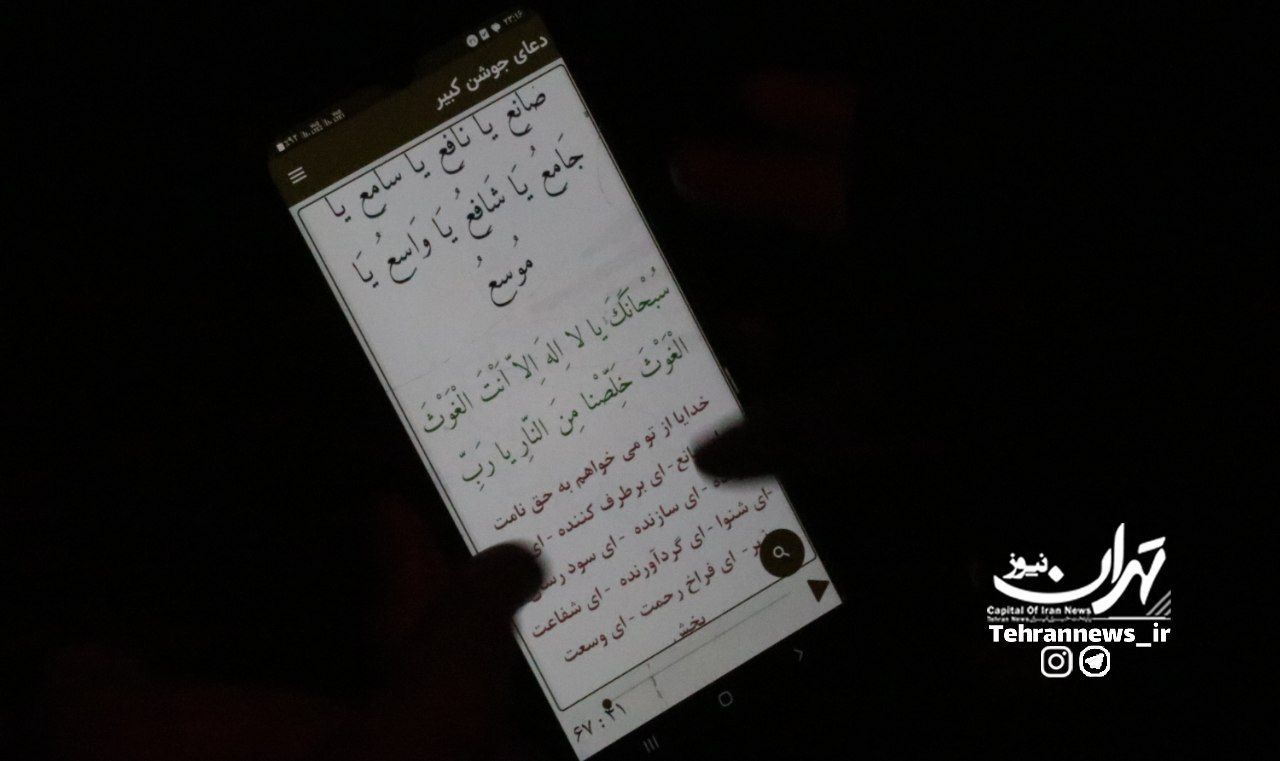 ۲۳:۱۶
٪۹۲
دعای جوشن کبیر
ضانع یا نافع یا سامع یا
جَامعُ یَا شَافعُ یَا وَاسعُ یَا
مُوسعُ
سُبْحانَكَ یا لا اِلهَ اِلاّ اَنْتَ الْغَوْثَ
الْغَوْثَ خَلِّصْنا مِنَ النّارِ یا رَبِّ
خدایا از تو می خواهم به حق نامت
انع - ای برطرف کننده - ای
ده - ای سازنده - ای سود رسان
- ای شنوا - ای گردآورنده - ای شفاعت
- ای فراخ رحمت - ای وسعت
بخش
۶۷:۴۱
تهران نیوز
Capital Of Iran News
Tehrannews_ir